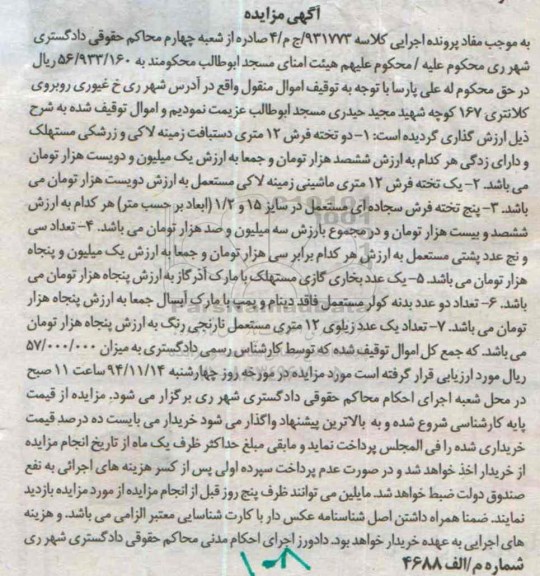 آگهی مزایده
به موجب مفاد پرونده اجرایی کلاسه ۹۳۱۷۷۳/ج م/۴ صادره از شعبه چهارم محاکم حقوقی دادگستری
شهر ری محکوم علیه / محکوم علیهم هیئت امنای مسجد ابوطالب محکومند به ۵۶/۹۳۳/۱۶۰ ریال
در حق محکوم له علی پارسا با توجه به توقیف اموال منقول واقع در آدرس شهر ری خ غیوری روبروی
کلانتری ۱۶۷ کوچه شهید مجید حیدری مسجد ابوطالب عزیمت نمودیم و اموال توقیف شده به شرح
ذیل ارزش گذاری گردیده است: ۱- دو تخته فرش ۱۲ متری دستبافت زمینه لاکی و زرشکی مستهلک
و دارای زدگی هر کدام به ارزش ششصد هزار تومان و جمعا به ارزش یک میلیون و دویست هزار تومان
می باشد. ۲- یک تخته فرش ۱۲ متری ماشینی زمینه لاکی مستعمل به ارزش دویست هزار تومان می
باشد. ۳- پنج تخته فرش سجاده ای مستعمل در سایز ۱۵ و ۱/۲ (ابعاد بر حسب متر) هر کدام به ارزش
ششصد و بیست هزار تومان و در مجموع بارزش سه میلیون و صد هزار تومان می باشد. ۴- تعداد سی
و نج عدد پشتی مستعمل به ارزش هر کدام برابر سی هزار تومان و جمعا به ارزش یک میلیون و پنجاه
هزار تومان می باشد. ۵- یک عدد بخاری گازی مستهلک با مارک آذر گاز به ارزش پنجاه هزار تومان می
باشد. ۶- تعداد دو عدد بدنه کولر مستعمل فاقد دینام و پمپ با مارک آبسال جمعا به ارزش پنجاه هزار
تومان می باشد. ۷- تعداد یک عدد زیلوی ۱۲ متری مستعمل نارنجی رنگ به ارزش پنجاه هزار تومان
می باشد. که جمع کل اموال توقیف شده که توسط کارشناس رسمی دادگستری به میزان ۵۷/۰۰۰/۰۰۰
ریال مورد ارزیابی قرار گرفته است مورد مزایده در مورخه روز چهارشنبه ۹۴/۱۱/۱۴ ساعت ۱۱ صبح
در محل شعبه اجرای احکام محاکم حقوقی دادگستری شهر ری برگزار می شود. مزایده از قیمت
پایه کارشناسی شروع شده و به بالاترین پیشنهاد واگذار می شود خریدار می بایست ده درصد قیمت
خریداری شده را فی المجلس پرداخت نماید و مابقی مبلغ حداکثر ظرف یک ماه از تاریخ انجام مزایده
از خریدار اخذ خواهد شد و در صورت عدم پرداخت سپرده اولی پس از کسر هزینه های اجرائی به نفع
صندوق دولت ضبط خواهد شد. مایلین می توانند ظرف پنج روز قبل از انجام مزایده از مورد مزایده بازدید
نمایند. ضمنا همراه داشتن اصل شناسنامه عکس دار با کارت شناسایی معتبر الزامی می باشد. و هزینه
های اجرایی به عهده خریدار خواهد بود. دادورز اجرای احکام مدنی محاکم حقوقی دادگستری شهر ری
شماره م/الف ۴۶۸۸
۱۰۸